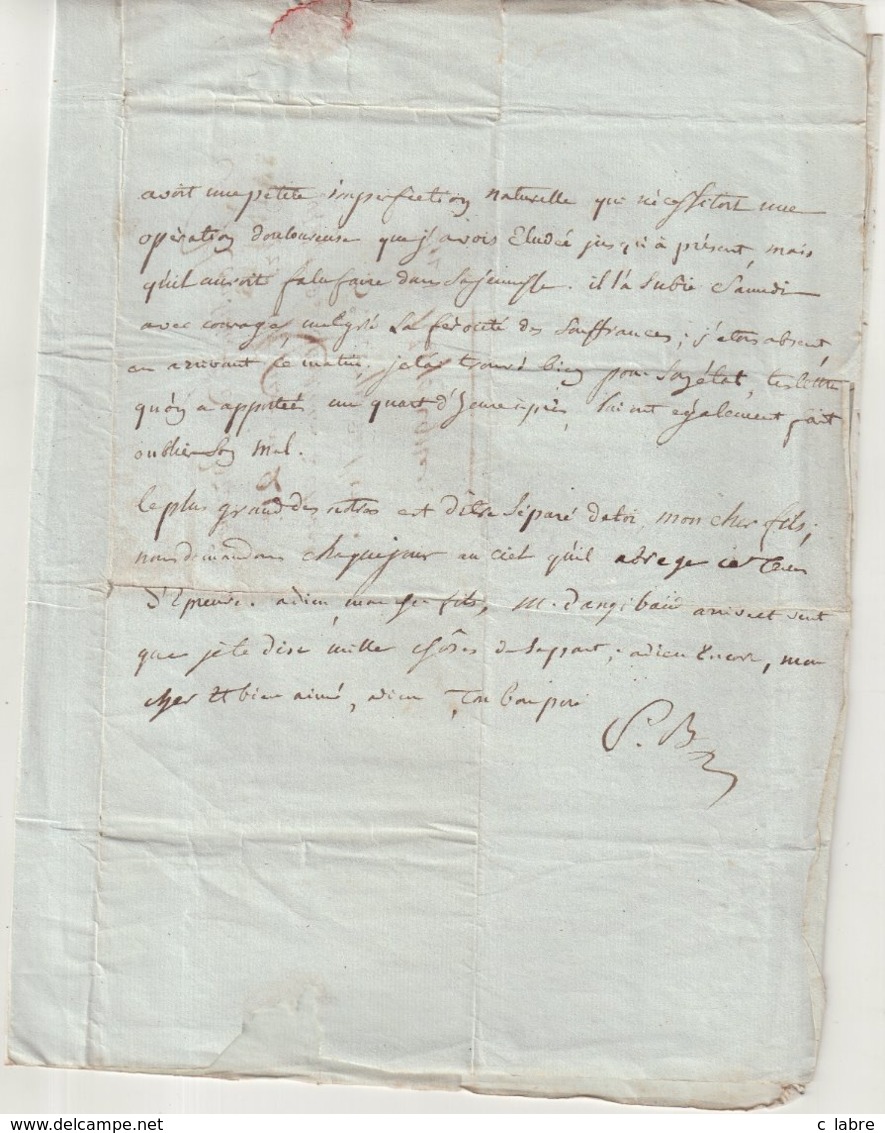 avoit une petite imperfection naturelle qui nécessitoit une
opération douloureuse que j'avois Eludée jusqu'à présent, mais
qu'il auroit falu faire dans sa jeunesse. il l'a subie Samedi
avec courage, malgré la férocité des souffrances; j'etois absent,
en arrivant ce matin, je l'ai trouvé bien pour son état, tes lettres
qu'on a apportées un quart d'heure après, lui ont également fait
oublier son mal.
le plus grand des notres est d'être séparé de toi, mon cher fils;
nous demandons chaque jour au ciel qu'il abrege ce tems
d'Epreuve. adieu, mon cher fils, M. dangibau arrive et veut
que je te dise mille choses de sa part; adieu Encore, mon
cher Et bien aimé, adieu ton bon pere
P. B
www.delcampe.net
c labre